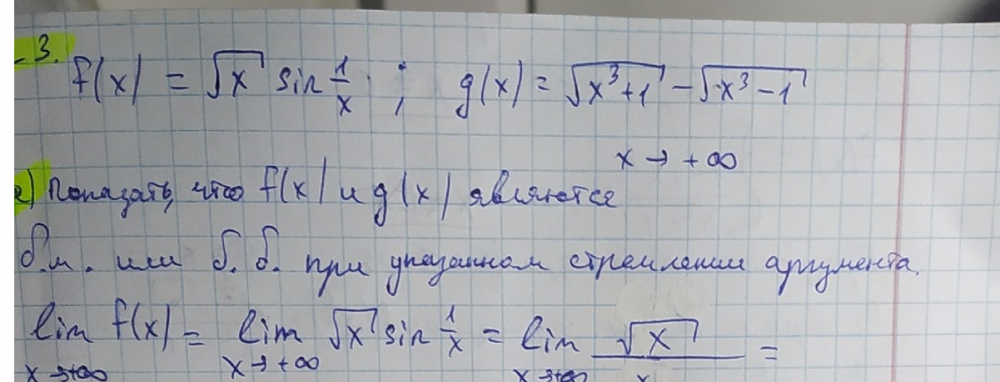 3. f(x) = √x sin 1/x ; g(x) = √(x³+1) - √(x³-1)
x → +∞
Показать, что f(x) и g(x) являются
б.м. или б.б. при указанном стремлении аргумента.
lim f(x) = lim √x sin 1/x = lim √x/x =
x→+∞ x→+∞ x→+∞